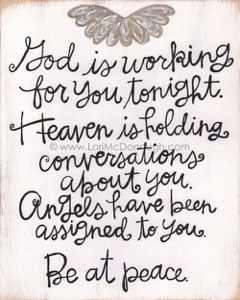 God is working
for you tonight.
Heaven is holding
© www.LoriMcDonough.com
conversations
about you.
Angels have been
assigned to you.
Be at peace.